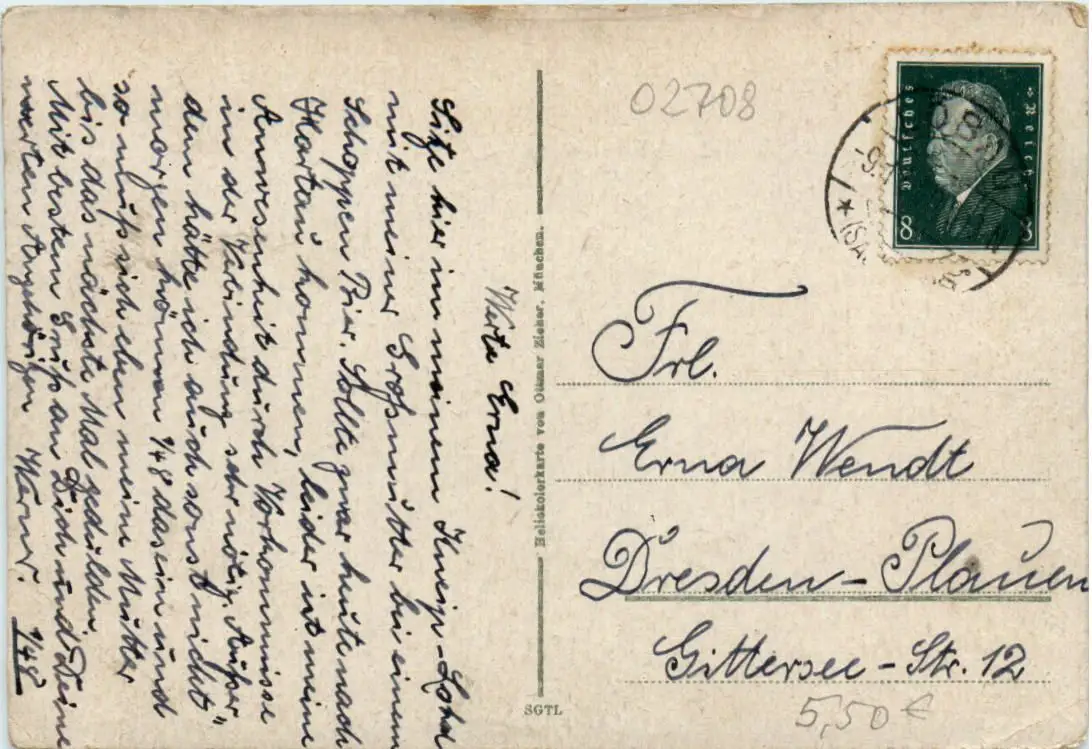 Werte Erna!
Sitze hier in meinem Kneip-Lokal
mit meiner Großmutter bei einem
Schoppen Bier. Sollte zwar heute nach
Hartau kommen, leider ist meine
Anwesenheit durch Vorkommnisse
in der Verbindung sehr nötig. Außer"
dem hätte ich auch sonst nicht
morgen können 1/48 da sein und
so muß sich eben meine Mutter
bis das nächste Mal gedulden.
Mit bestem Gruß an Dich und Deine
werten Angehörigen Werner. 1/48
Helickolorkarte von Ottmar Zieher, München.
SGTL
02708
Deutsches Reich
8 8
Frl.
Erna Wendt
Dresden-Plauen
Gittersee-Str. 12
5,50 €